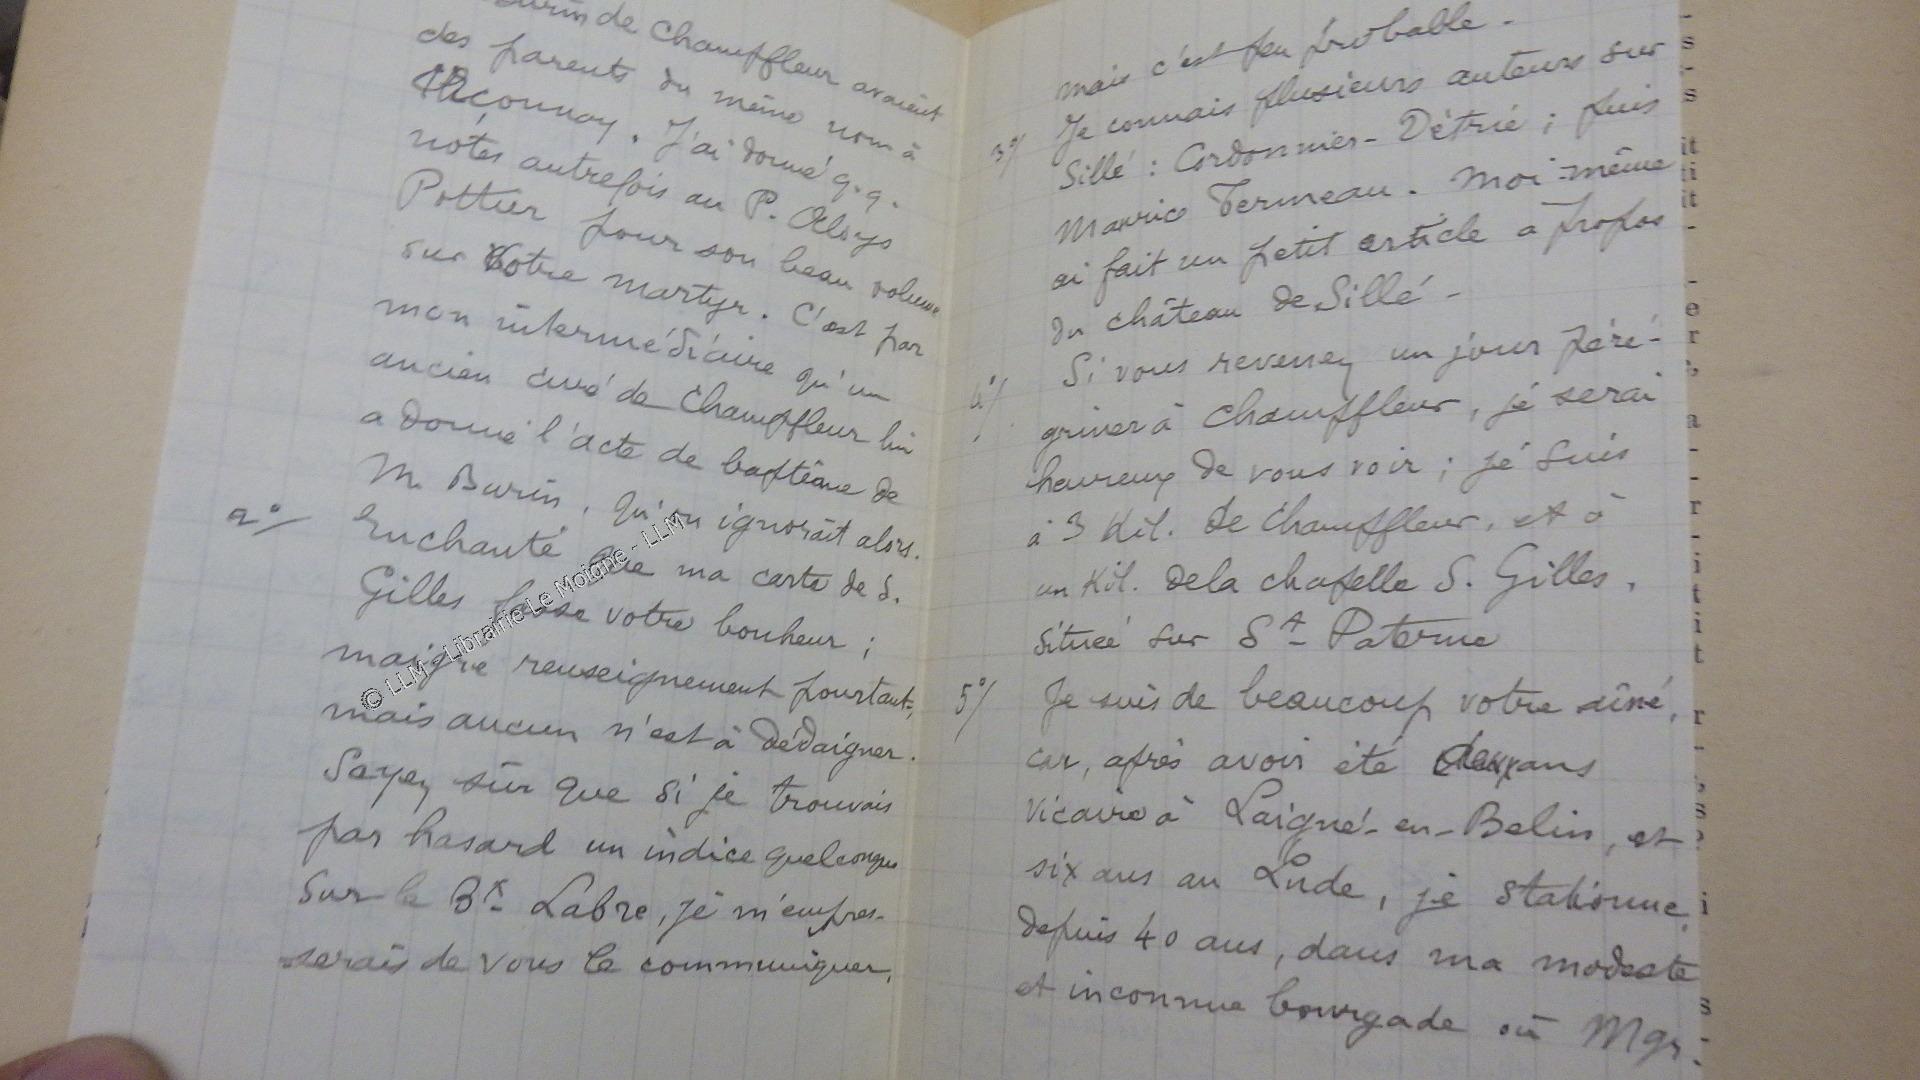 Burin de Champfleur avaient
des parents du même nom à
Arçonnay. J'ai donné q.q.
notes autrefois au P. Aloys
Pottier pour son beau volume
sur votre martyr. C'est par
mon intermédiaire qu'un
ancien curé de Champfleur lui
a donné l'acte de baptême de
M. Burin, qu'on ignorait alors.
2°/ Enchanté que ma carte de S.
Gilles fasse votre bonheur ;
maigre renseignement pourtant,
mais aucun n'est à dédaigner.
Soyez sûr que si je trouvais
par hasard un indice quelconque
sur le Bx Labre, je m'empres-
serais de vous le communiquer,
mais c'est peu probable -
3°/ Je connais plusieurs auteurs sur
Sillé : Cordonnier-Détrié ; puis
Maurice Termeau. Moi-même
ai fait un petit article a propos
du château de Sillé -
4°/ Si vous revenez un jour péré-
griner à Champfleur, je serai
heureux de vous voir ; je suis
à 3 Kil. de Champfleur, et à
un Kil. de la chapelle S. Gilles,
située sur St Paterne
5°/ Je suis de beaucoup votre aîné,
car, après avoir été deux ans
vicaire à Laigné-en-Belin, et
six ans au Lude, je stationne
depuis 40 ans, dans ma modeste
et inconnue bourgade où Mgr.
© LLM - Librairie Le Moigne - LLM